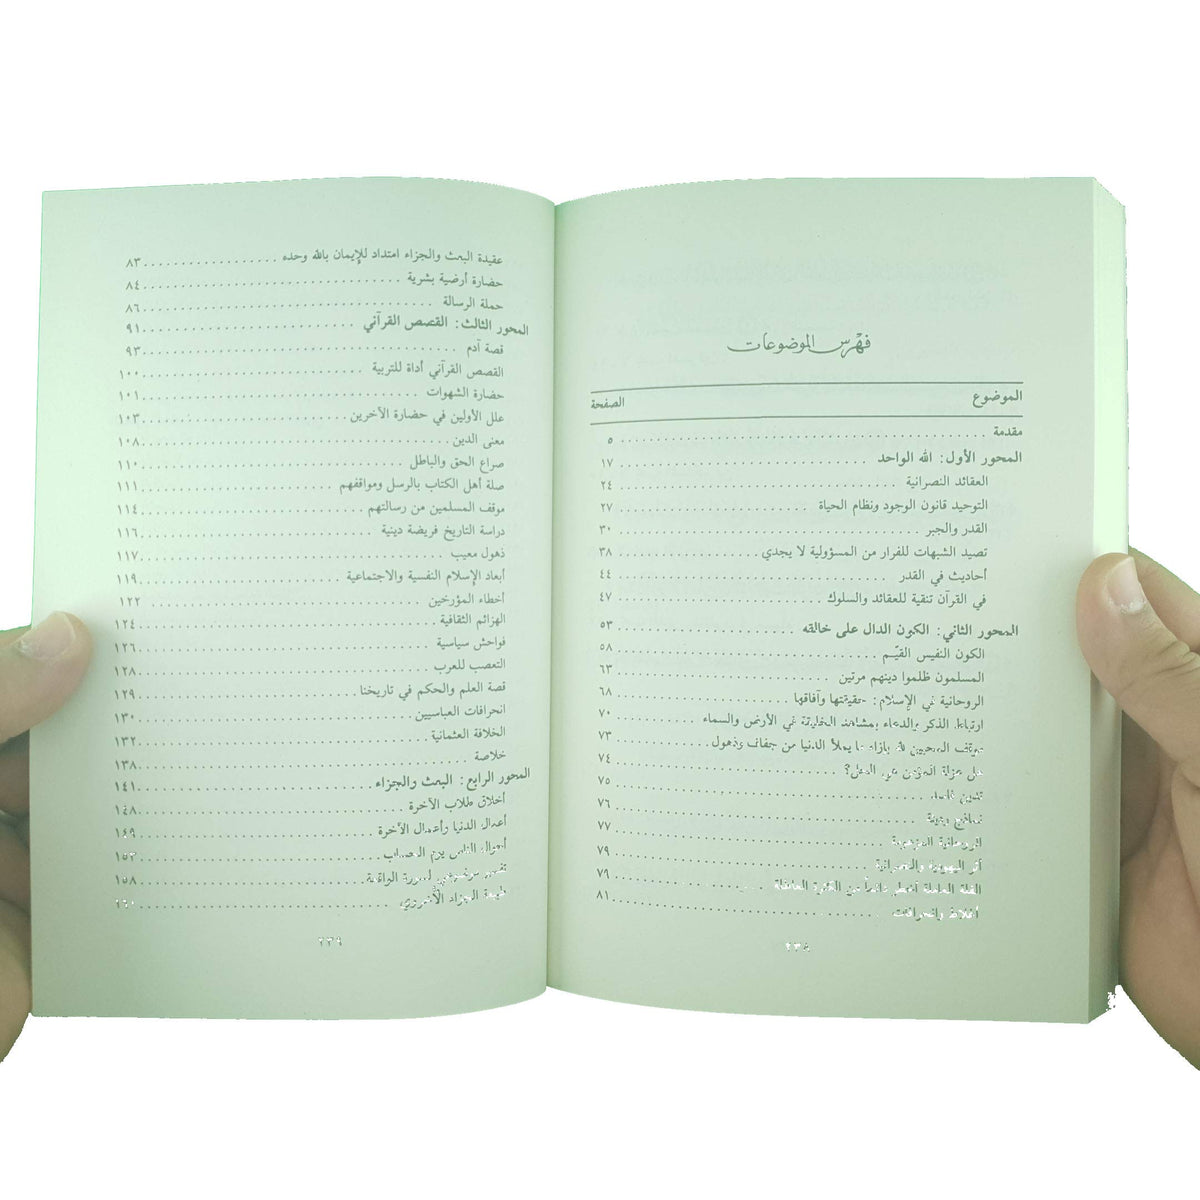 فهرس الموضوعات
الموضوع الصفحة
مقدمة ٥
المحور الأول: الله الواحد ١٧
العقائد النصرانية ٢٤
التوحيد قانون الوجود ونظام الحياة ٢٧
القدر والجبر ٣٠
تصيد الشبهات للفرار من المسؤولية لا يجدي ٣٨
أحاديث في القدر ٤٤
في القرآن تنقية للعقائد والسلوك ٤٧
المحور الثاني: الكون الدال على خالقه ٥٣
الكون النفيس القيّم ٥٨
المسلمون ظلموا دينهم مرتين ٦٣
الروحانية في الإسلام: حقيقتها وآفاقها ٦٨
ارتباط الذكر والدعاء بمشاهد الخليقة في الأرض والسماء ٧٠
موقف المحبين لله بإزاء ما يملأ الدنيا من جفاف وذهول ٧٣
هل عزلة المؤمن هي الحل؟ ٧٤
تدين فاسد ٧٥
نماذج ٧٦
الروحانية ٧٧
أثر اليهودية والنصرانية ٧٩
القلة العاملة أخطر دائماً من الكثرة العاطلة ٧٩
أغلاط وانحرافات ٨١
٢٣٨
عقيدة البعث والجزاء امتداد للإيمان بالله وحده ٨٣
حضارة أرضية بشرية ٨٤
حملة الرسالة ٨٦
المحور الثالث: القصص القرآني ٩١
قصة آدم ٩٣
القصص القرآني أداة للتربية ١٠٠
حضارة الشهوات ١٠١
علل الأولين في حضارة الآخرين ١٠٣
معنى الدين ١٠٨
صراع الحق والباطل ١١٠
صلة أهل الكتاب بالرسل ومواقفهم ١١١
موقف المسلمين من رسالتهم ١١٤
دراسة التاريخ فريضة دينية ١١٦
ذهول معيب ١١٧
أبعاد الإسلام النفسية والاجتماعية ١١٩
أخطاء المؤرخين ١٢٢
الهزائم الثقافية ١٢٤
فواحش سياسية ١٢٦
التعصب للعرب ١٢٨
قصة العلم والحكم في تاريخنا ١٢٩
انحرافات العباسيين ١٣٠
الخلافة العثمانية ١٣٢
خلاصة ١٣٨
المحور الرابع: البعث والجزاء ١٤١
أخلاق طلاب الآخرة ١٤٨
أعمال الدنيا وأعمال الآخرة ١٤٩
أحوال الناس يوم الحساب ١٥٣
تفسير موضوعي لسورة الواقعة ١٥٨
طبيعة الجزاء الأخروي ١٦٠
٢٣٩